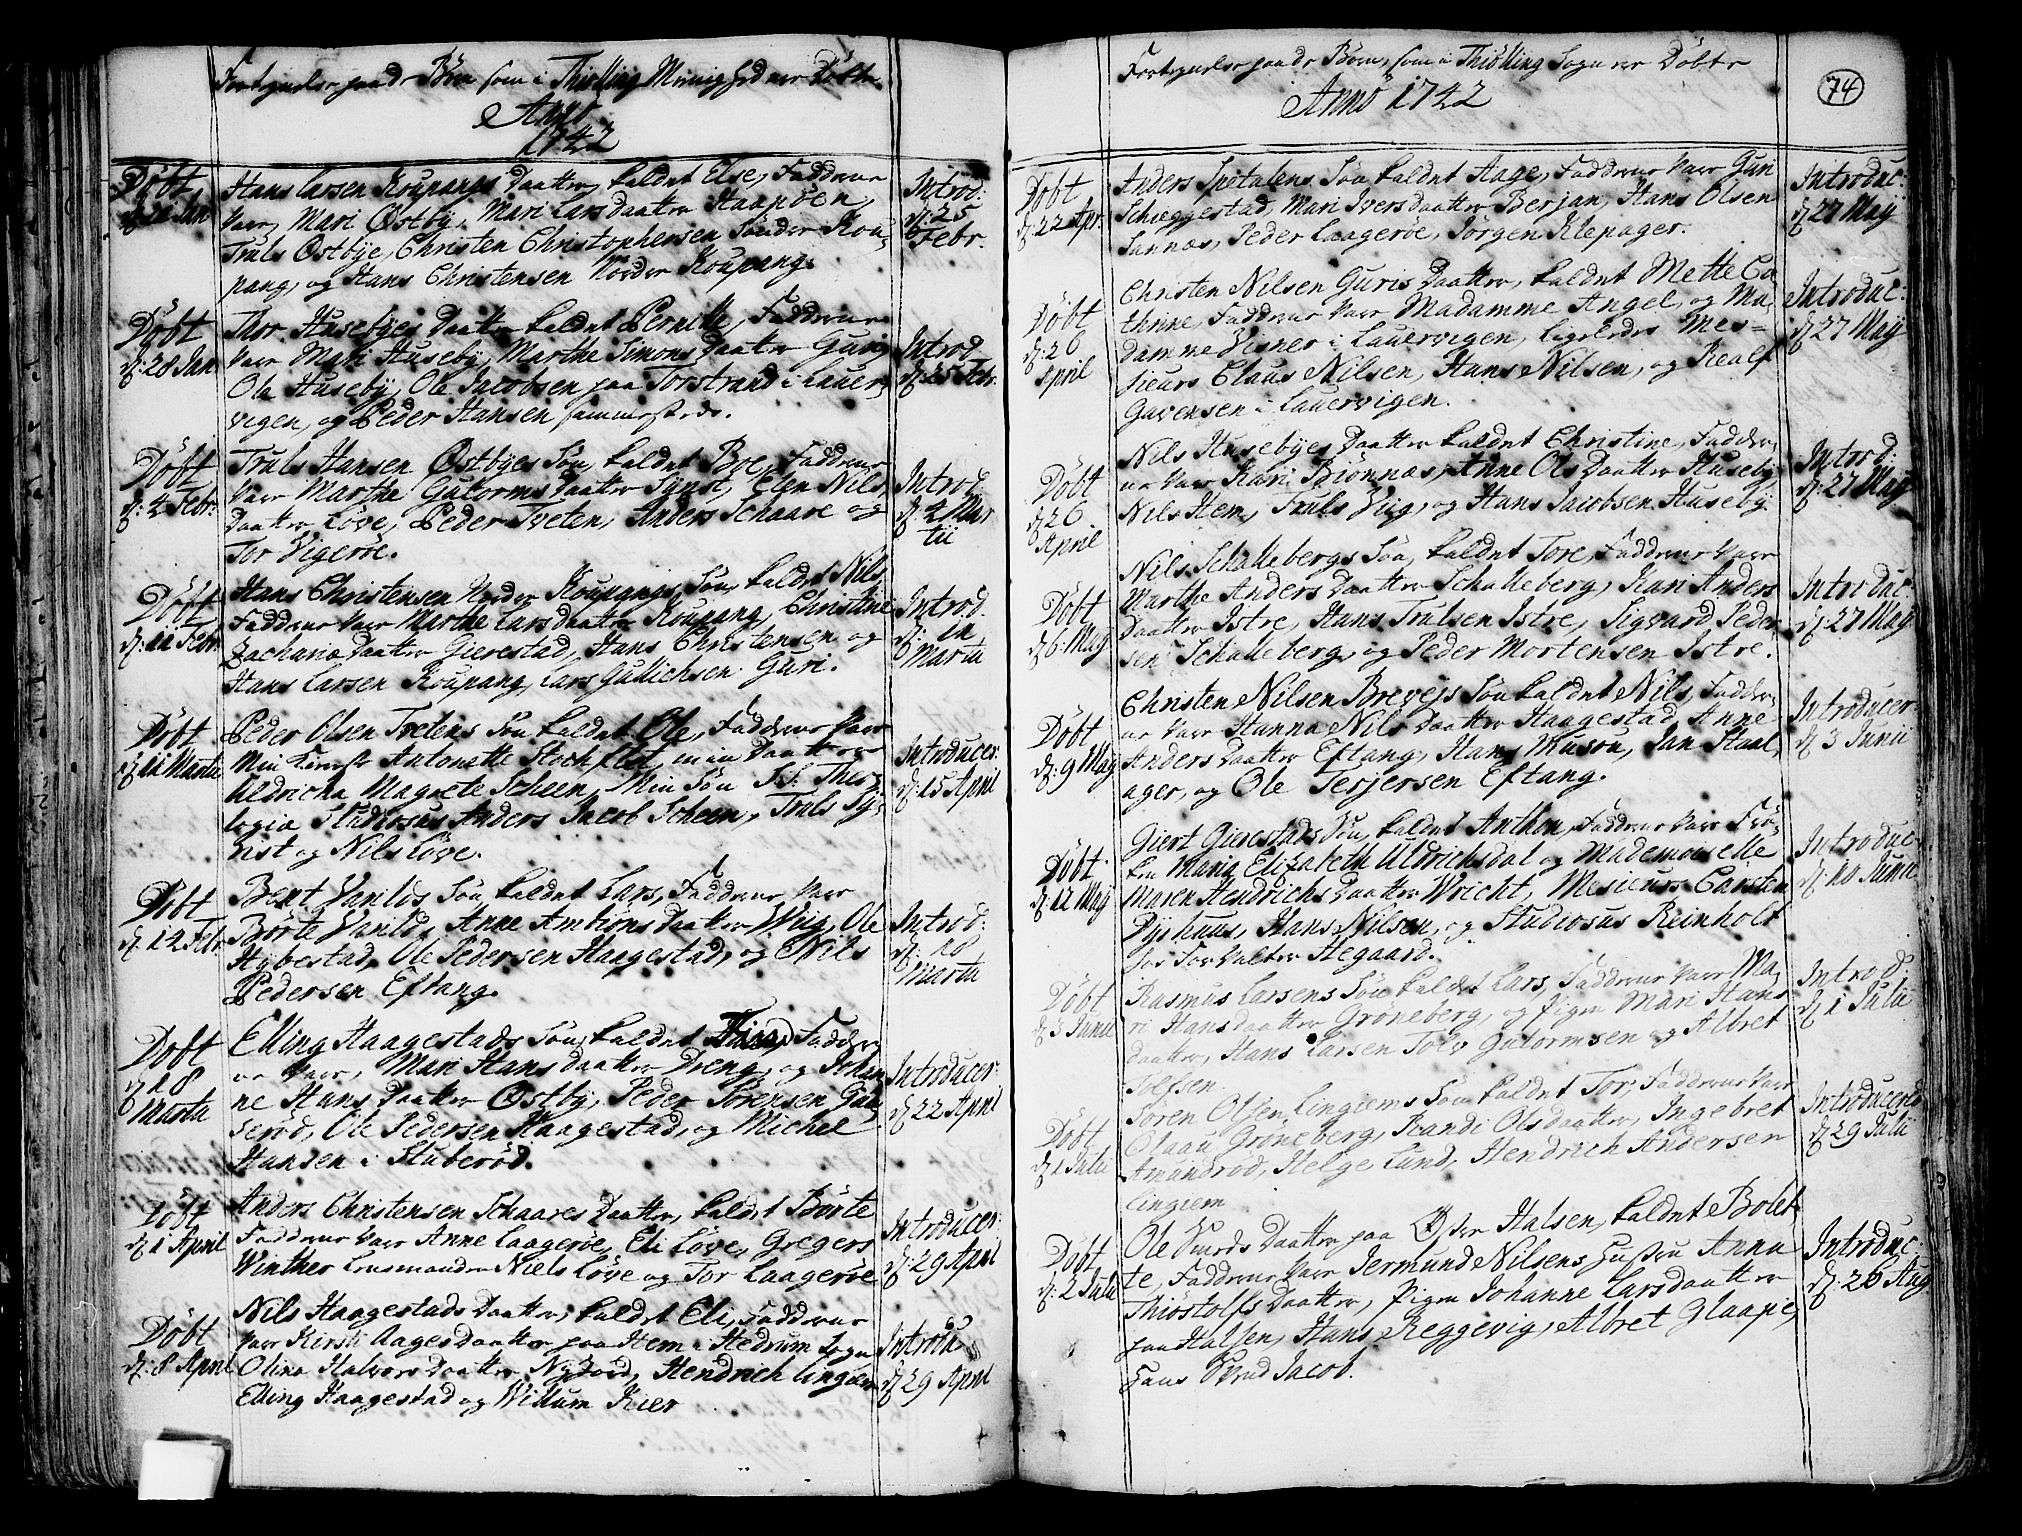 Fortegnelse paa de Börn som i Thiölling Menighed ere Döbte
Anno
1742
Döbt
Hans Larsen Koupangs Daatter, kaldet Else, Faddrene
Vare, Mari Östby, Mari Larsdaatter Haapöen,
Truls Östbye, Christen Christophersen Sönder Kou-
pang, og Hans Christensen Nörder Koupang.
Introd:
d: 25
Febr.
Döbt
d: 28 Jan
Thor Husebyes Daatter kaldet Pernelle, Faddrene
Vare Mari Huseby, Marthe Simons Daatter Guri,
Ole Huseby, Ole Jacobsen paa Torstrand i Lauer-
vigen, og Peder Hansen sammesteds.
Introd
d: 25 Febr.
Döbt
d: 4 Febr:
Truls Hansen Östbyes Sön, kaldet Boe, Faddrene
Vare Marthe Gulorms Daatter Synst, Elen Nils
Daatter Löve, Peder Tveten, Anders Schaare og
Tor Vigeröe.
Introd
d: 4 Mar
tii
Döbt
d: 11 Febr.
Hans Christensen Nörder Koupangs Sön, kaldet Nils,
Faddrene Vare Marthe Larsdaatter Koupang, Christine
Zachariæ Daatter Gierestad, Hans Christensen og
Hans Larsen Koupang, Lars Gullichsen Guri.
Introd.
d: 11
Martii
Döbt
d: 11 Martii
Peder Olsen Tvetens Sön kaldet Ole, Faddrene Vare
Min Kiereste Antonette Stochflet, min Daatter
Uldricha Magrete Scheen, Min Sön SS. Theo-
logiæ Studiosus Anders Jacob Scheen, Truls Sy-
rist og Nils Löve.
Introducer:
d: 15 April
Döbt
d: 14 Febr.
Bent Vanlds Sön kaldet Lars, Faddrene Vare
Börte Vanlds, Anne Amtions Daatter Wiig, Ole
Hybestad, Ole Pedersen Haagestad, og Nils
Pedersen Eftang.
Introd:
d: 18
Martii
Döbt
d: 18
Martii
Elling Haagestads Sön, kaldet Faddre-
ne Vare, Mari Hansdaatter Dreng, og Johan
ne Hans Daatter Östby, Peder Sörensen Gun
seröd, Ole Pedersen Haagestad, og Michel
Hansen i Stuberöd.
Introducer:
d: 22 April
Döbt
d: 1 April
Anders Christensen Schaares Daatter, kaldet Börte
Faddrene Vare Anne Laageröe, Eli Löve, Gregers
Winther Lensmanden Niels Löve og Tor Laageröe
Introducer:
d: 29 April
Döbt
d: 8 April
Nils Haagestads Daatter, kaldet Eli, Faddrene
Vare Kirsti Aagesdaatter paa Hem i Hedrum Sogn
Olina Halvors Daatter Nyboud, Hendrich Lingiem
Elling Haagestad og Willum Kier
Introdu
d: 29 April
Fortegnelse paa de Börn, som i Thiölling Sogn ere Döbte
Anno 1742
74
Döbt
d: 22 Apr:
Anders Spetalens Sön kaldet Aage, Faddrene Vare Gun
Schæggestad, Mari Iversdaatter Berjan, Hans Olsen
Sannæs, Peder Laageröe, Jörgen Klepager.
Introduc:
d: 27 Maij
Döbt
d: 26
April
Christen Nilsen Guris Daatter, kaldet Mette Ca
thrine, Faddrene Vare Madamme Angel, og Ma-
damme Visner i Lauervigen, ligeledes Mes-
sieurs Claus Nilsen, Hans Nilsen, og Realf
Gavensen i Lauervigen.
Introduc:
d: 27 Maij
Döbt
d: 26
April
Nils Husebyes Daatter kaldet Christine, Faddre-
ne Vare Kari Biönnæs, Anne Ols Daatter Huseby,
Nils Hem, Truls Viig, og Hans Jacobsen Huseby.
Introd:
d: 27 Maij
Döbt
d: 6 Maij
Nils Schallebergs Sön, kaldet Tore, Faddrene Vare
Marthe Anders Daatter Schalleberg, Kari Anders
Daatter Istre, Hans Trulsen Istre, Sigvard Peder
sen Schalleberg, og Peder Mortensen Istre.
Introduc:
d: 27 Maij
Döbt
d: 9 Maij
Christen Nilsen Brevejs Sön kaldet Nils, Faddre-
ne Vare Hanna Nils Daatter Haagestad, Anne
Anders Daatter Eftang, Hans Musöu, Jan Staal
ager, og Ole Terjersen Eftang.
Introducer
d: 3 Junii
Döbt
d: 11 Maij
Giert Gierestads Sön, kaldet Anthon, Faddrene Vare Frö-
ken Maria Elizabeth Uldrichsdal og Mademoiselle
Maren Hendrichs Daatter Wricht, Mesieurs Carsten
Pijshuus, Hans Nilsen, og Studiosus Reinholt
hos Forvalter Hegaard.
Introduc
d: 10 Junii
Döbt
d: 3 Junii
Rasmus Larsens Sön kaldet Lars, Faddrene Vare Ma
ri Hansdaatter Gröneberg, og Pigen Mari Hans
daatter, Hans Larsen Tolv Gulormsen og Albret
Tolfsen
Introd.
d: 1 Julii
Döbt
d: 1 Julii
Sören Olsen Lingiems Sön kaldet Tor, Faddrene Vare
Olaau Gröneberg, Randi Olsdaatter, Ingebret
Amundröd, Helge Lund, Hendrich Andersen
Lingiem
Introducer
d: 29 Julii
Döbt
d: 2 Julii
Ole Smeds Daatter paa Östre Halsen, kaldet Bolet
te, Faddrene Vare Jermund Nilsens Hustru Anna
Thiöstolfs Daatter, Pigen Johanne Larsdaatter
paa Halsen, Hans Reggevig, Albret Glaapie,
Hans Svend Jacob.
Introduc:
d: 26 Aug